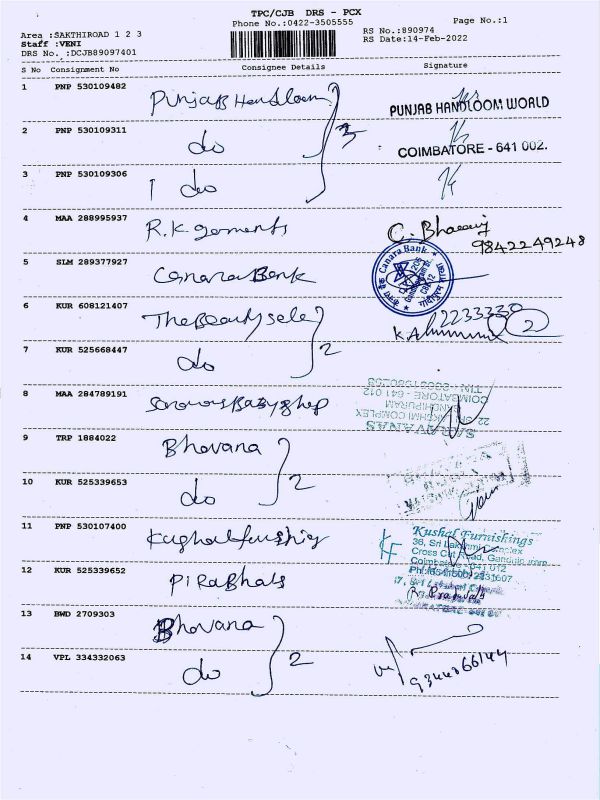 TPC/CJB DRS - PCX
Phone No.:0422-3505555
Page No.:1
Area :SAKTHIROAD 1 2 3
Staff :VENI
DRS No. :DCJB89097401
RS No.:890974
RS Date:14-Feb-2022
S No Consignment No Consignee Details Signature
1 PNP 530109482 Punjab Handloom
PUNJAB HANDLOOM WORLD
2 PNP 530109311 do 3
COIMBATORE - 641 002.
3 PNP 530109306 do
4 MAA 288995937 R.K. garments
9842249248
5 SLM 289377927 Canara Bank
Canara Bank
6 KUR 608121407 The Beauty sele
2233330
7 KUR 525668447 do 2
2
8 MAA 284789191
SARAVANAS
COIMBATORE - 641 012
9 TRP 1884022 Bhavana
10 KUR 525339653 do 2
11 PNP 530107400
Kushal Furnishings
36, Sri Lakshmi Complex
Cross Cut Road,
Coimbatore - 641 012
KF
12 KUR 525339652
13 BWD 2709303 Bhavana
14 VPL 334332063 do 2
9344066144